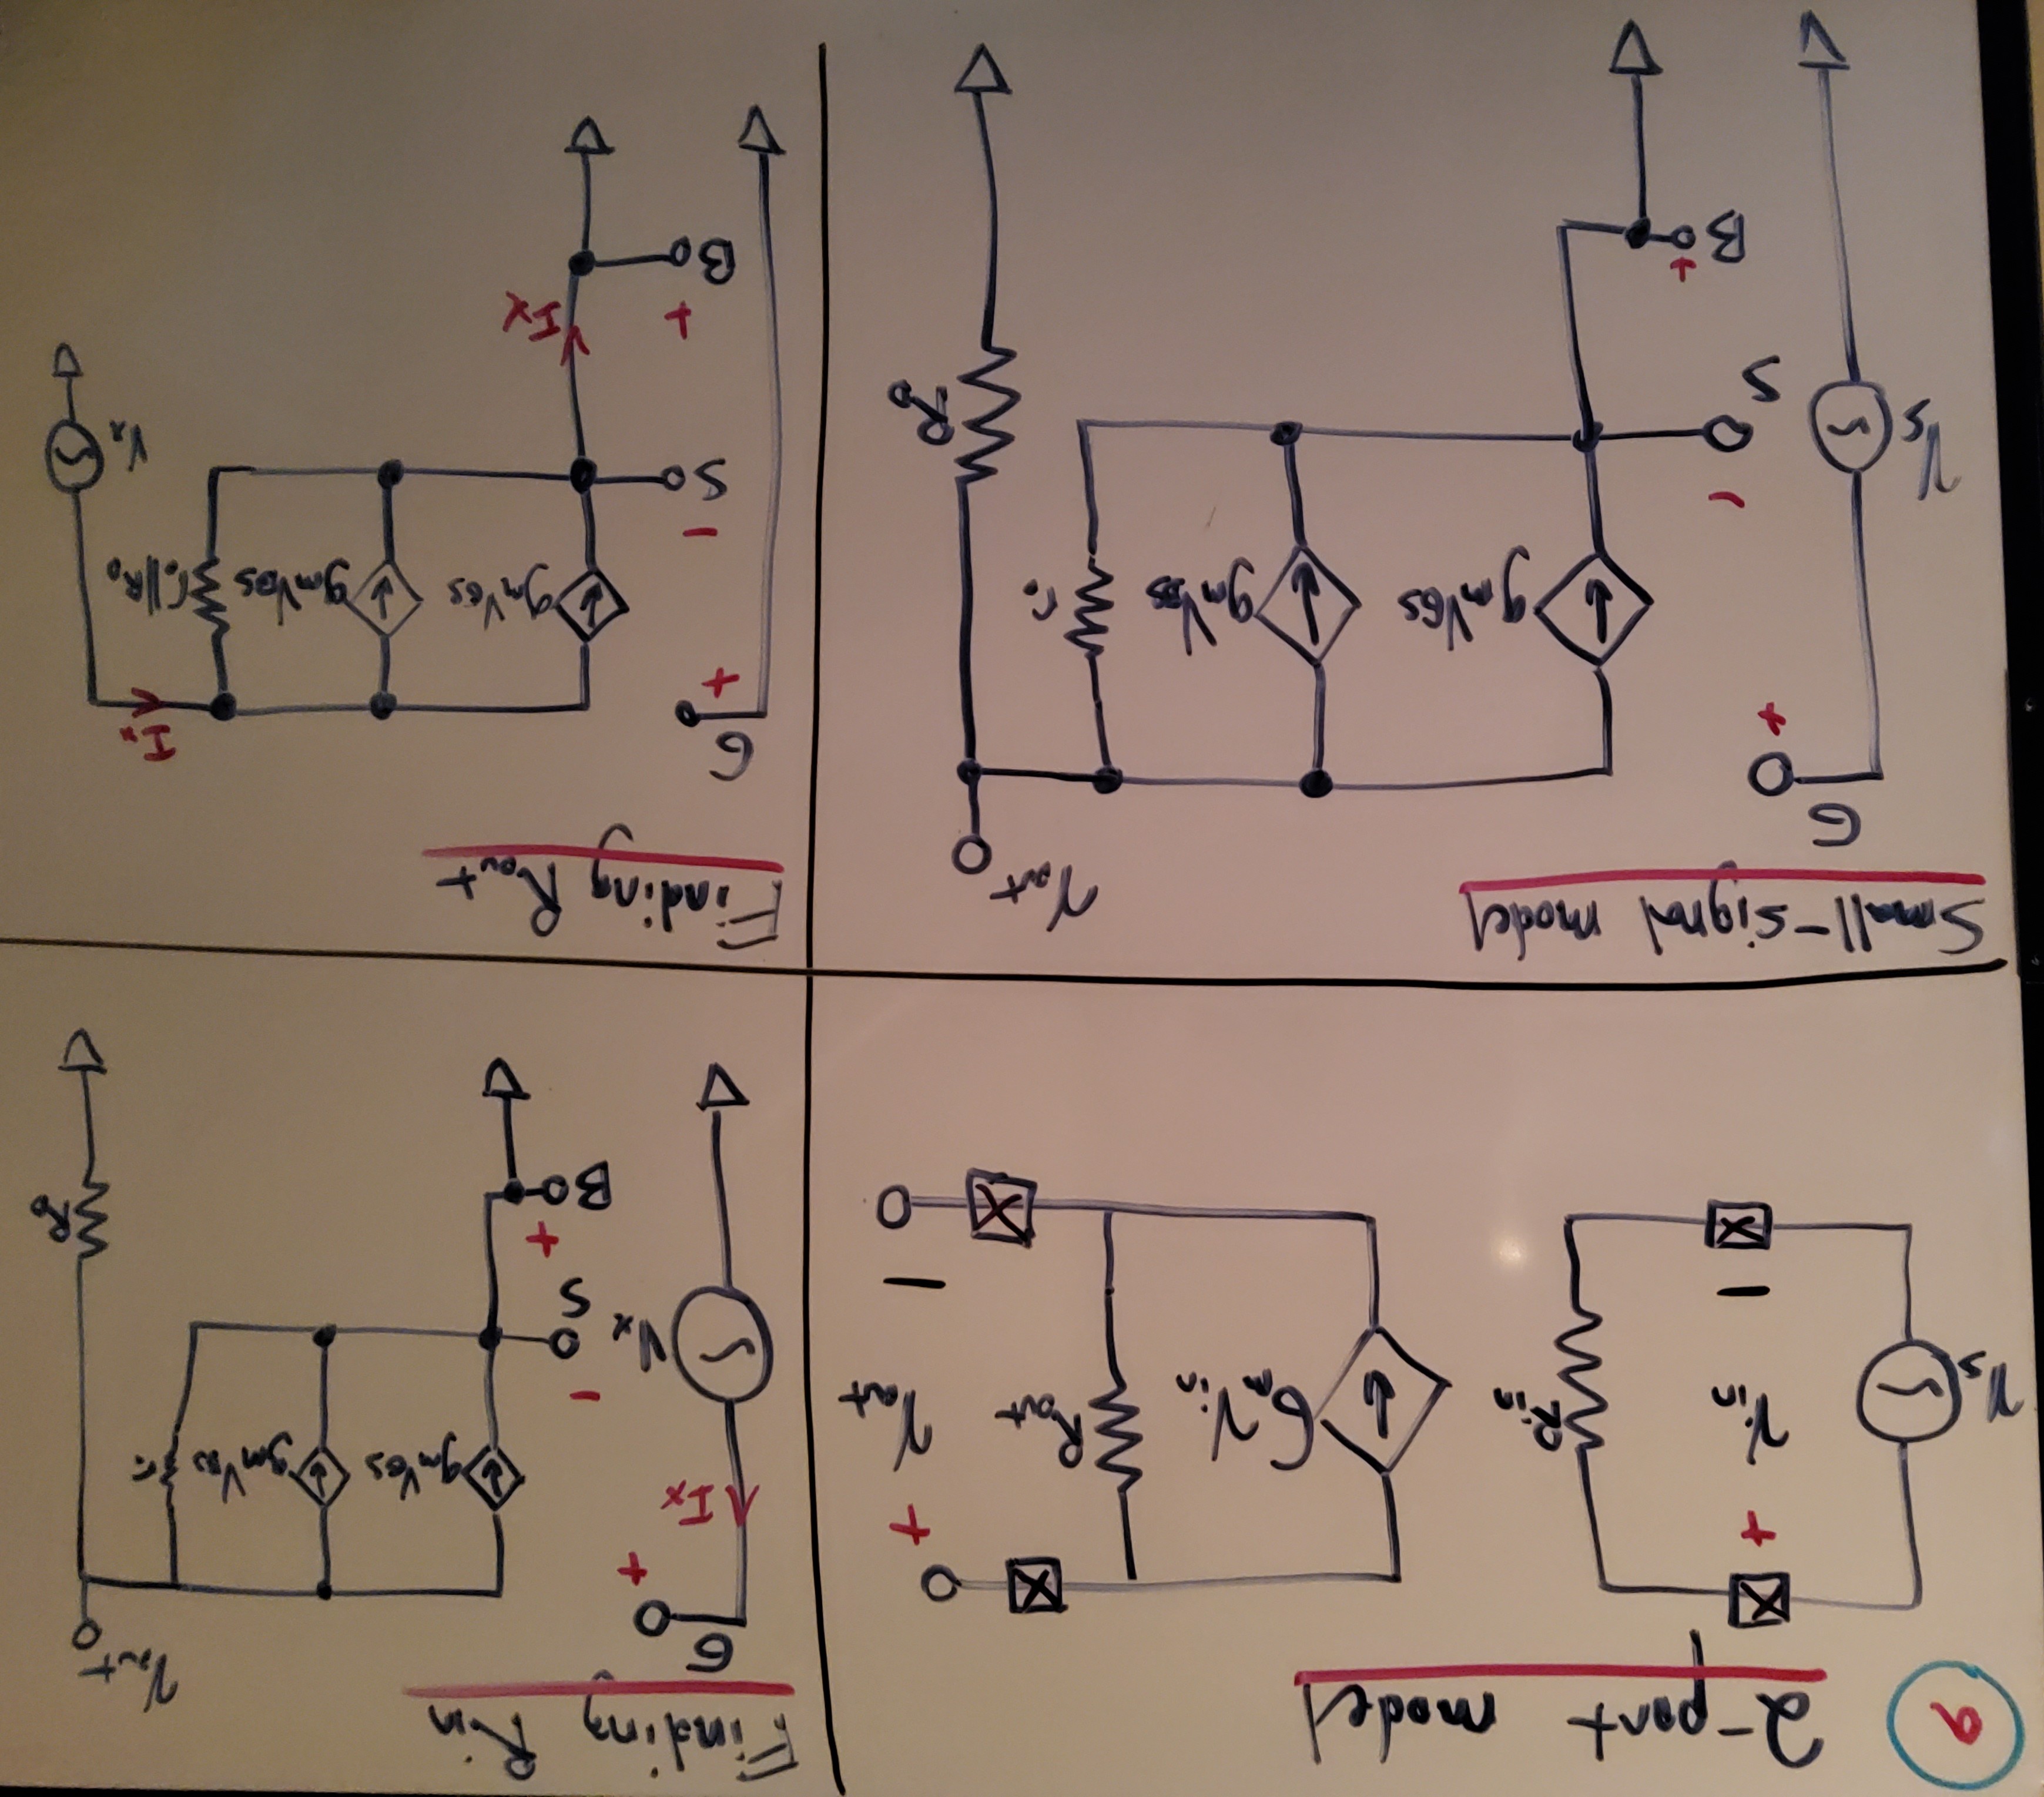 a
2-port model
+
Vin
-
Vs
Rin
GmVin
Rout
+
Vout
-
Finding Rin
G
+
Ix
Vx
-
S
+
B
gmVGS
gmVBS
ro
Vout
RD
Small-signal model
G
+
Vs
-
S
+
B
gmVGS
gmVBS
ro
Vout
RD
Finding Rout
G
+
-
S
+
B
gmVGS
gmVBS
ro||RD
Ix
Ix
Vx